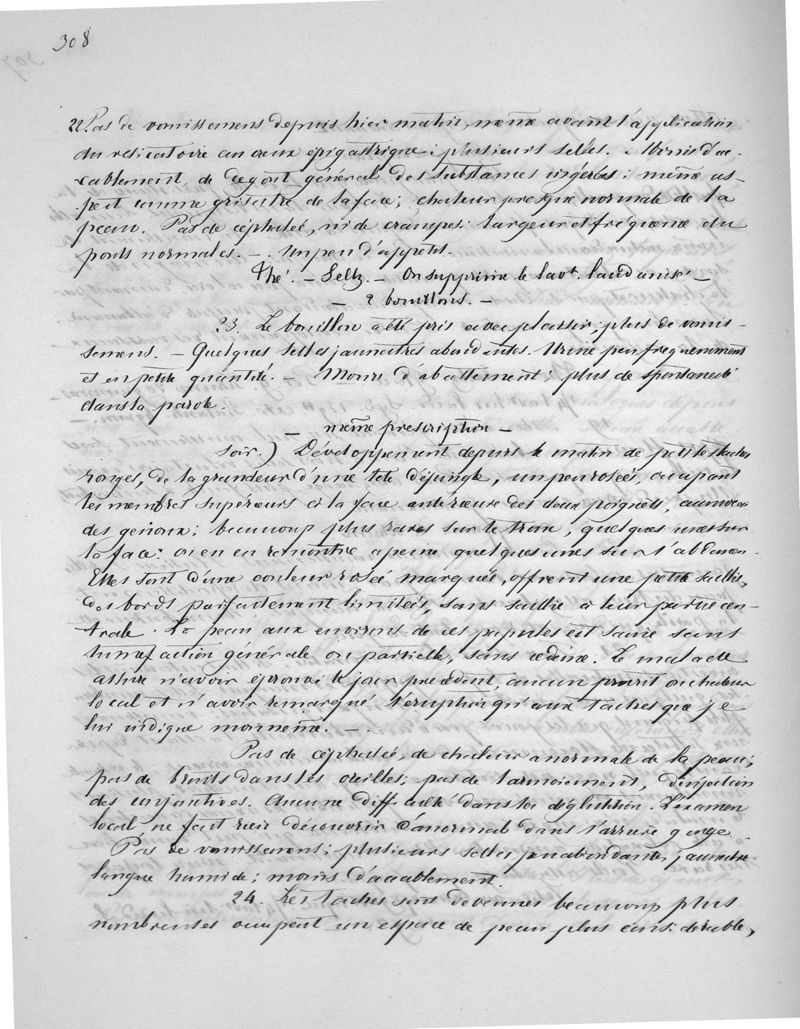 308
22. Pas de vomissemens depuis hier matin, même avant l'application
du vésicatoire au creux épigastrique; plusieurs selles. Moins d'ac-
cablement, de dégout général des substances ingérées: même as-
pect comme grisatre de la face; chaleur presque normale de la
peau. Pas de céphalée, ni de crampes: largeur et fréquence du
pouls normales. — Un peu d'appétit.
Thé. — Seltz. — On supprime le lavt. laudanisé —
— 2 bouillons. —
23. Le bouillon a été pris avec plaisir; plus de vomis-
semens. — Quelques selles jaunatres abondantes. Urine peu fréquemment
et en petite quantité. — Moins d'abattement; plus de spontanéité
dans la parole.
— même prescription —
soir.) Développement depuis le matin de petites taches
rouges, de la grandeur d'une tête d'épingle, un peu rosées, occupant
les membres supérieurs à la face antérieure des deux poignets, au niveau
des genoux; beaucoup plus rares sur le tronc, quelques unes sur
la face: on en rencontre à peine quelques unes sur l'abdomen.
Elles sont d'une couleur rosée marquée, offrent une petite saillie,
des bords parfaitement limités, sans saillie à leur partie cen-
trale. La peau aux environs de ces papules est saine sans
tuméfaction générale ou partielle, sans œdème. Le malade
assure n'avoir éprouvé le jour précédent, aucun prurit ou chaleur
local et n'avoir remarqué l'éruption qu'aux taches que je
lui indique moi même. —.
Pas de céphalée, de chaleur anormale de la peau;
pas de bruits dans les oreilles; pas de larmoiement, d'injection
des conjonctives. Aucune difficulté dans la déglutition. L'examen
local, ne fait rien découvrir d'anormal dans l'arrière gorge.
Pas de vomissemens; plusieurs selles peu abondantes, jaunatres
langue humide; moins d'accablement.
24. Les taches sont devenues beaucoup plus
nombreuses occupent un espace de peau plus considérable,